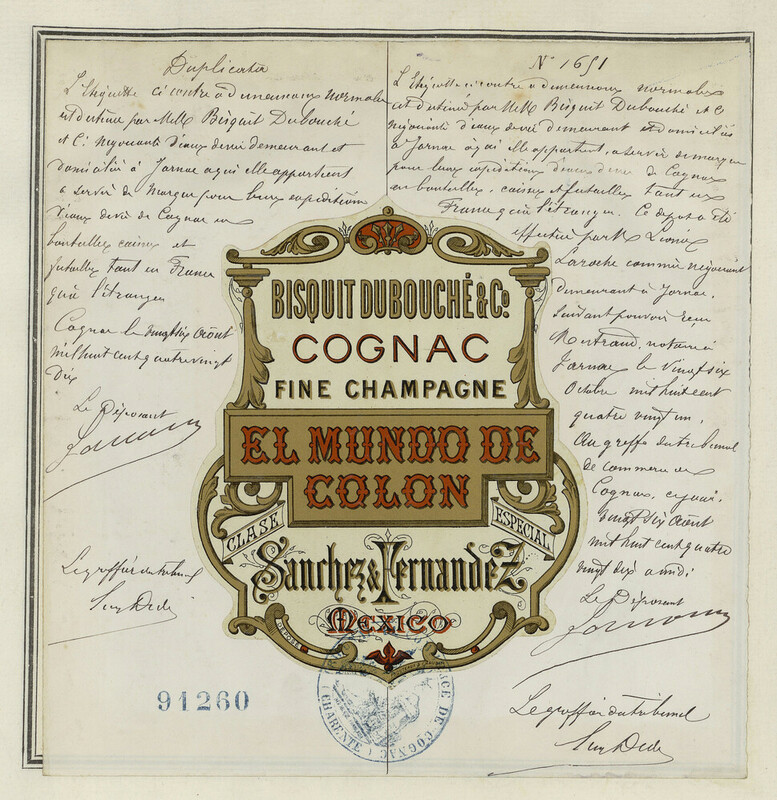 Duplicata
L'étiquette ci contre a dimensions normales
est destinée par MM. Bisquit Dubouché
et Cie négociants d'eaux de vie demeurant et
domiciliés à Jarnac à qui elle appartient
à servir de marque pour leurs expéditions
d'eaux de vie de Cognac en
bouteilles caisses et
futailles tant en France
qu'à l'étranger
Cognac le vingt six août
mil huit cent quatre vingt
dix
Le Déposant
Le greffier du tribunal
N° 1651
L'étiquette ci contre a dimensions normales
est destinée par MM. Bisquit Dubouché et Cie
négociants d'eaux de vie demeurant et domiciliés
à Jarnac à qui elle appartient, à servir de marque
pour leurs expéditions d'eaux de vie de Cognac
en bouteilles, caisses et futailles tant en
France qu'à l'étranger. Ce dépôt a été
effectué par M.
Laroche commis négociant
demeurant à Jarnac,
suivant pouvoir reçu
Mertrand, notaire à
Jarnac le vingt six
Octobre mil huit cent
quatre vingt un,
Au greffe du tribunal
de commerce de
Cognac, ce jour,
vingt six août
mil huit cent quatre
vingt dix a midi
Le Déposant
Le greffier du tribunal
BISQUIT DUBOUCHÉ & Co.
COGNAC
FINE CHAMPAGNE
EL MUNDO DE
COLON
CLASE ESPECIAL
Sanchez & Fernandez
MEXICO
91260
DE COGNAC (CHARENTE)